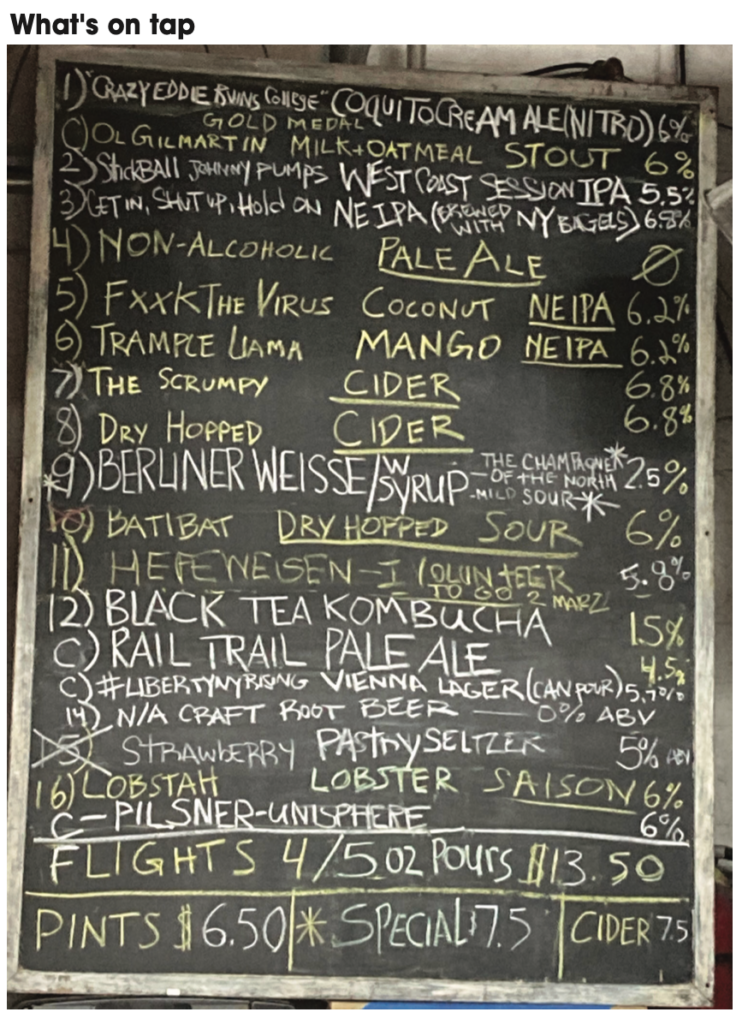 What's on tap
1) "CRAZY EDDIE RUINS COLLEGE" COQUITO CREAM ALE (NITRO) 6%
GOLD MEDAL
C) OL GILMARTIN MILK+OATMEAL STOUT 6%
2) StickBALL JOHNNY PUMPS WEST COAST SESSION IPA 5.5%
3) GET IN, SHUT UP, Hold ON NEIPA (BREWED WITH NY BAGELS) 6.8%
4) NON-ALCOHOLIC PALE ALE Ø
5) FXXK THE VIRUS COCONUT NEIPA 6.2%
6) TRAMPLE LLAMA MANGO NEIPA 6.2%
7) THE SCRUMPY CIDER 6.8%
8) DRY HOPPED CIDER 6.8%
*9) BERLINER WEISSE/W SYRUP - THE CHAMPAGNE* - OF THE NORTH - MILD SOUR* 2.5%
10) BATIBAT DRY HOPPED SOUR 6%
11) HEFEWEISEN - I VOLUNTEER 5.8%
TO GO 2 MARZ
12) BLACK TEA KOMBUCHA 1.5%
C) RAIL TRAIL PALE ALE 4.5%
C) #LIBERTYNYRISING VIENNA LAGER (CAN POUR) 5.7%
14) N/A CRAFT ROOT BEER — 0% ABV
15) STRAWBERRY PAStry SELTZER 5% ABV
16) LOBSTAH LOBSTER SAISON 6%
C - PILSNER-UNISPHERE 6%
FLIGHTS 4/5 OZ POURS $13.50
PINTS $6.50 * SPECIAL $7.5 CIDER 7.5